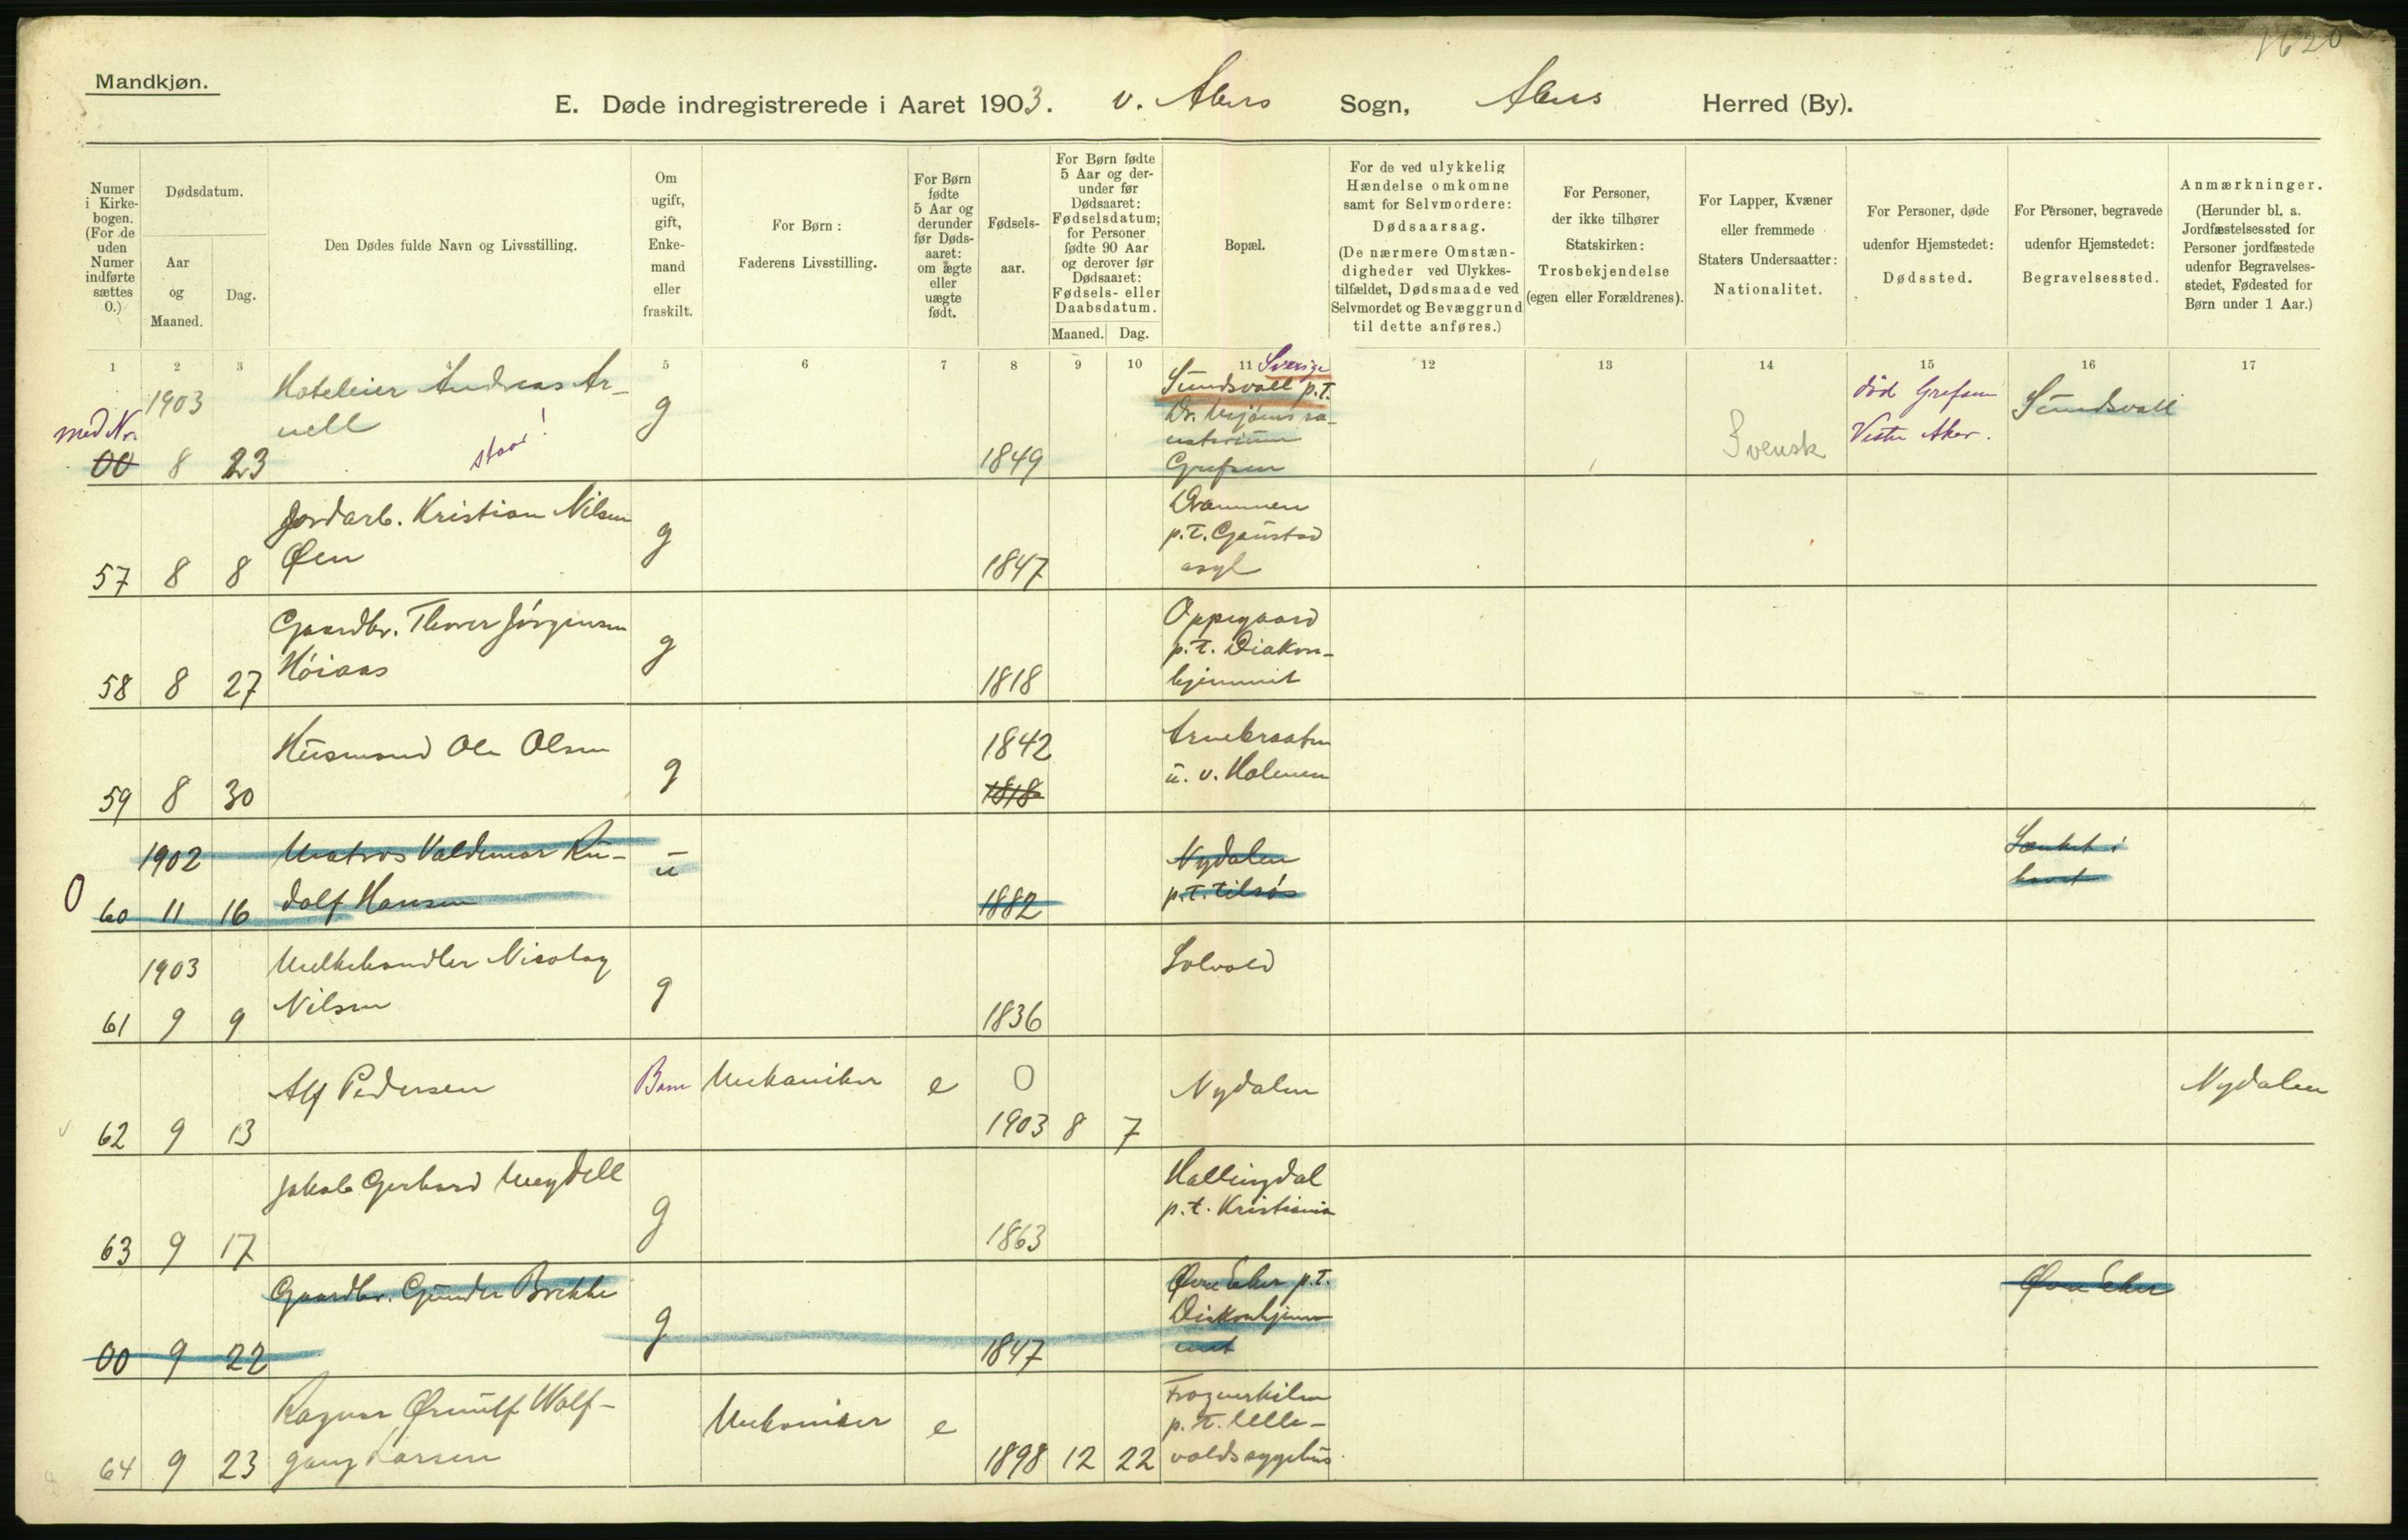 1620
Mandkjøn.
E. Døde indregistrerede i Aaret 1903. v. Akers Sogn, Akers Herred (By).
Numer i Kirkebogen. (For de uden Numer indførte sættes 0.)
Dødsdatum.
Aar og Maaned.
Dag.
Den Dødes fulde Navn og Livsstilling.
Om ugift, gift, Enkemand eller fraskilt.
For Børn: Faderens Livsstilling.
For Børn fødte 5 Aar og derunder før Dødsaaret: om ægte eller uægte født.
Fødselsaar.
For Børn fødte 5 Aar og derunder før Dødsaaret: Fødselsdatum; for Personer fødte 90 Aar og derover før Dødsaaret: Fødsels- eller Daabsdatum.
Maaned. Dag.
Bopæl.
For de ved ulykkelig Hændelse omkomne samt for Selvmordere: Dødsaarsag. (De nærmere Omstændigheder ved Ulykkestilfældet, Dødsmaade ved Selvmordet og Bevæggrund til dette anføres.)
For Personer, der ikke tilhører Statskirken: Trosbekjendelse (egen eller Forældrenes).
For Lapper, Kvæner eller fremmede Staters Undersaatter: Nationalitet.
For Personer, døde udenfor Hjemstedet: Dødssted.
For Personer, begravede udenfor Hjemstedet: Begravelsessted.
Anmærkninger. (Herunder bl. a. Jordfæstelsessted for Personer jordfæstede udenfor Begravelsesstedet, Fødested for Børn under 1 Aar.)
1 2 3 5 6 7 8 9 10 11 12 13 14 15 16 17
1903 Hoteleier Andreas Ar- g Sundsvall p.t. Sverige død Grefsen Sundsvall
med Nr. nell Dr. Mjøens sa- Vestre Aker.
staar! natorium Svensk
00 8 23 1849 Grefsen
Jordarb. Kristian Nilsen g Drammen
Øen p.t. Gaustad
57 8 8 1847 asyl
Gaardbr. Thorer Jörgensen g Oppegaard
Höiaas p.t. Diakon-
58 8 27 1818 hjemmet
Husmand Ole Olsen g 1842 Arnebraaten
59 8 30 1818 u. v. Holmen
1902 Matros Valdemar Ru- u Nydalen Sænket i
0 60 11 16 dolf Hansen 1882 p.t. tilsös havet
1903 Melkehandler Nicolay g Solvold
61 9 9 Nilsen 1836
Alf Pedersen Barn Mekaniker e 0 Nydalen Nydalen
62 9 13 1903 8 7
Jakob Gerhard Meydell g Hallingdal
p.t. Kristiania
63 9 17 1863
Gaardbr. Gunder Brekke g Øvre Eker p.t. Øvre Eker
Diakonhjem-
00 9 22 1847 met
Ragnar Ørnulf Wolf- Mekaniker e Frognerkilen
p.t. Ulle-
64 9 23 gang Larsen 1898 12 22 valds sygehus